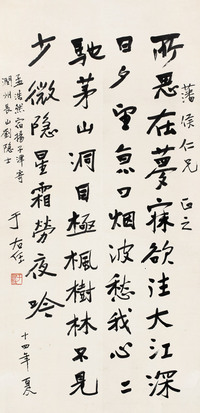 藩侯仁兄 正之
所思在夢寐欲往大江深
日夕望京口烟波愁我心二
馳茅山洞目極楓樹林不見
少微隱星霜勞夜吟
孟浩然宿揚子津寄
潤州長山劉隱士
于右任
十四年